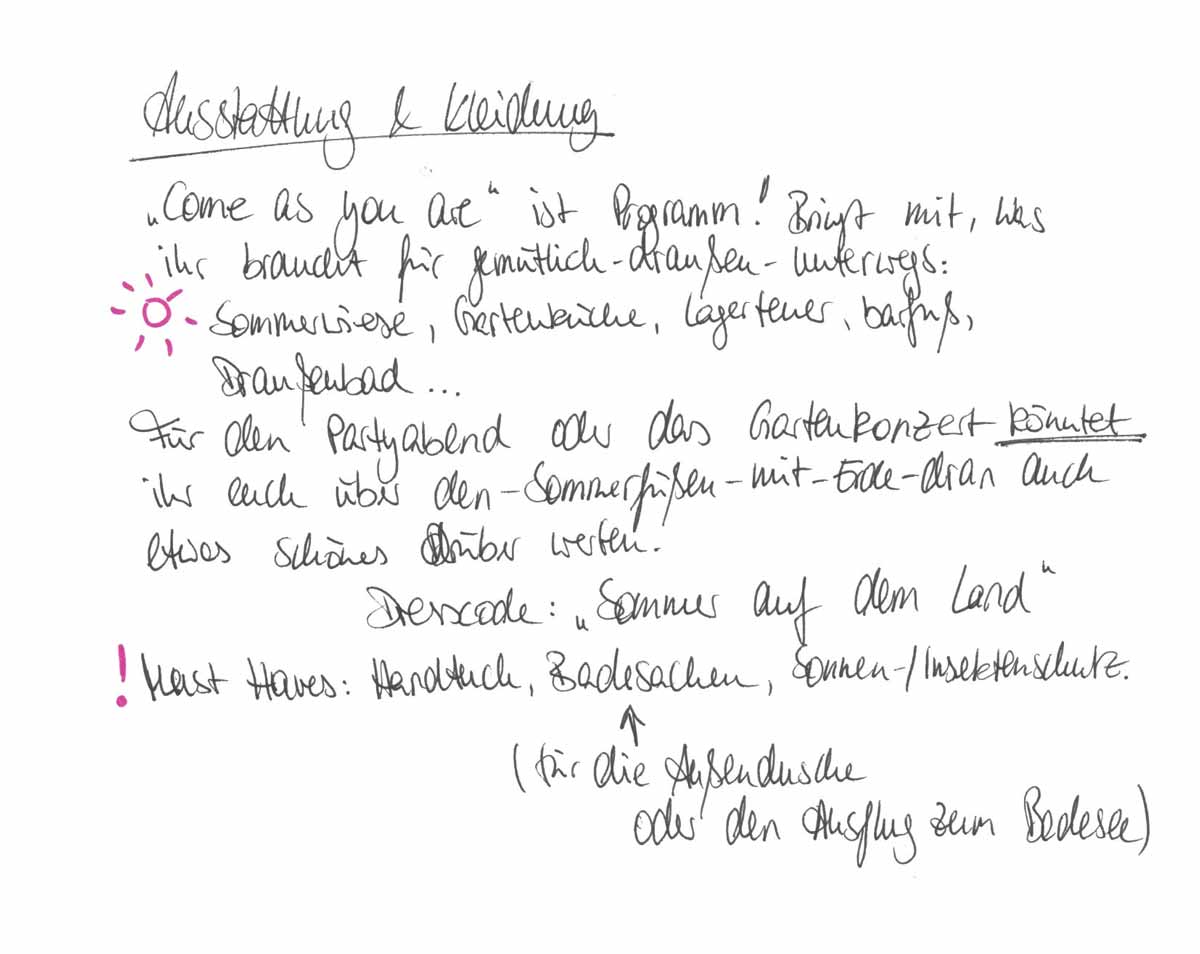 Ausstattung & Kleidung
„Come as you are“ ist Programm! Bringt mit, was
ihr braucht für gemütlich-draußen-unterwegs:
Sommerwiese, Gartenküche, Lagerfeuer, barfuß,
Draußenbad ...
Für den Partyabend oder das Gartenkonzert könntet
ihr euch über den-Sommerfüßen-mit-Erde-dran auch
etwas schönes drüber werfen.
Dresscode: „Sommer auf dem Land“
! Must Haves: Handtuch, Badesachen, Sonnen-/Insektenschutz.
(für die Außendusche
oder den Ausflug zum Badesee)